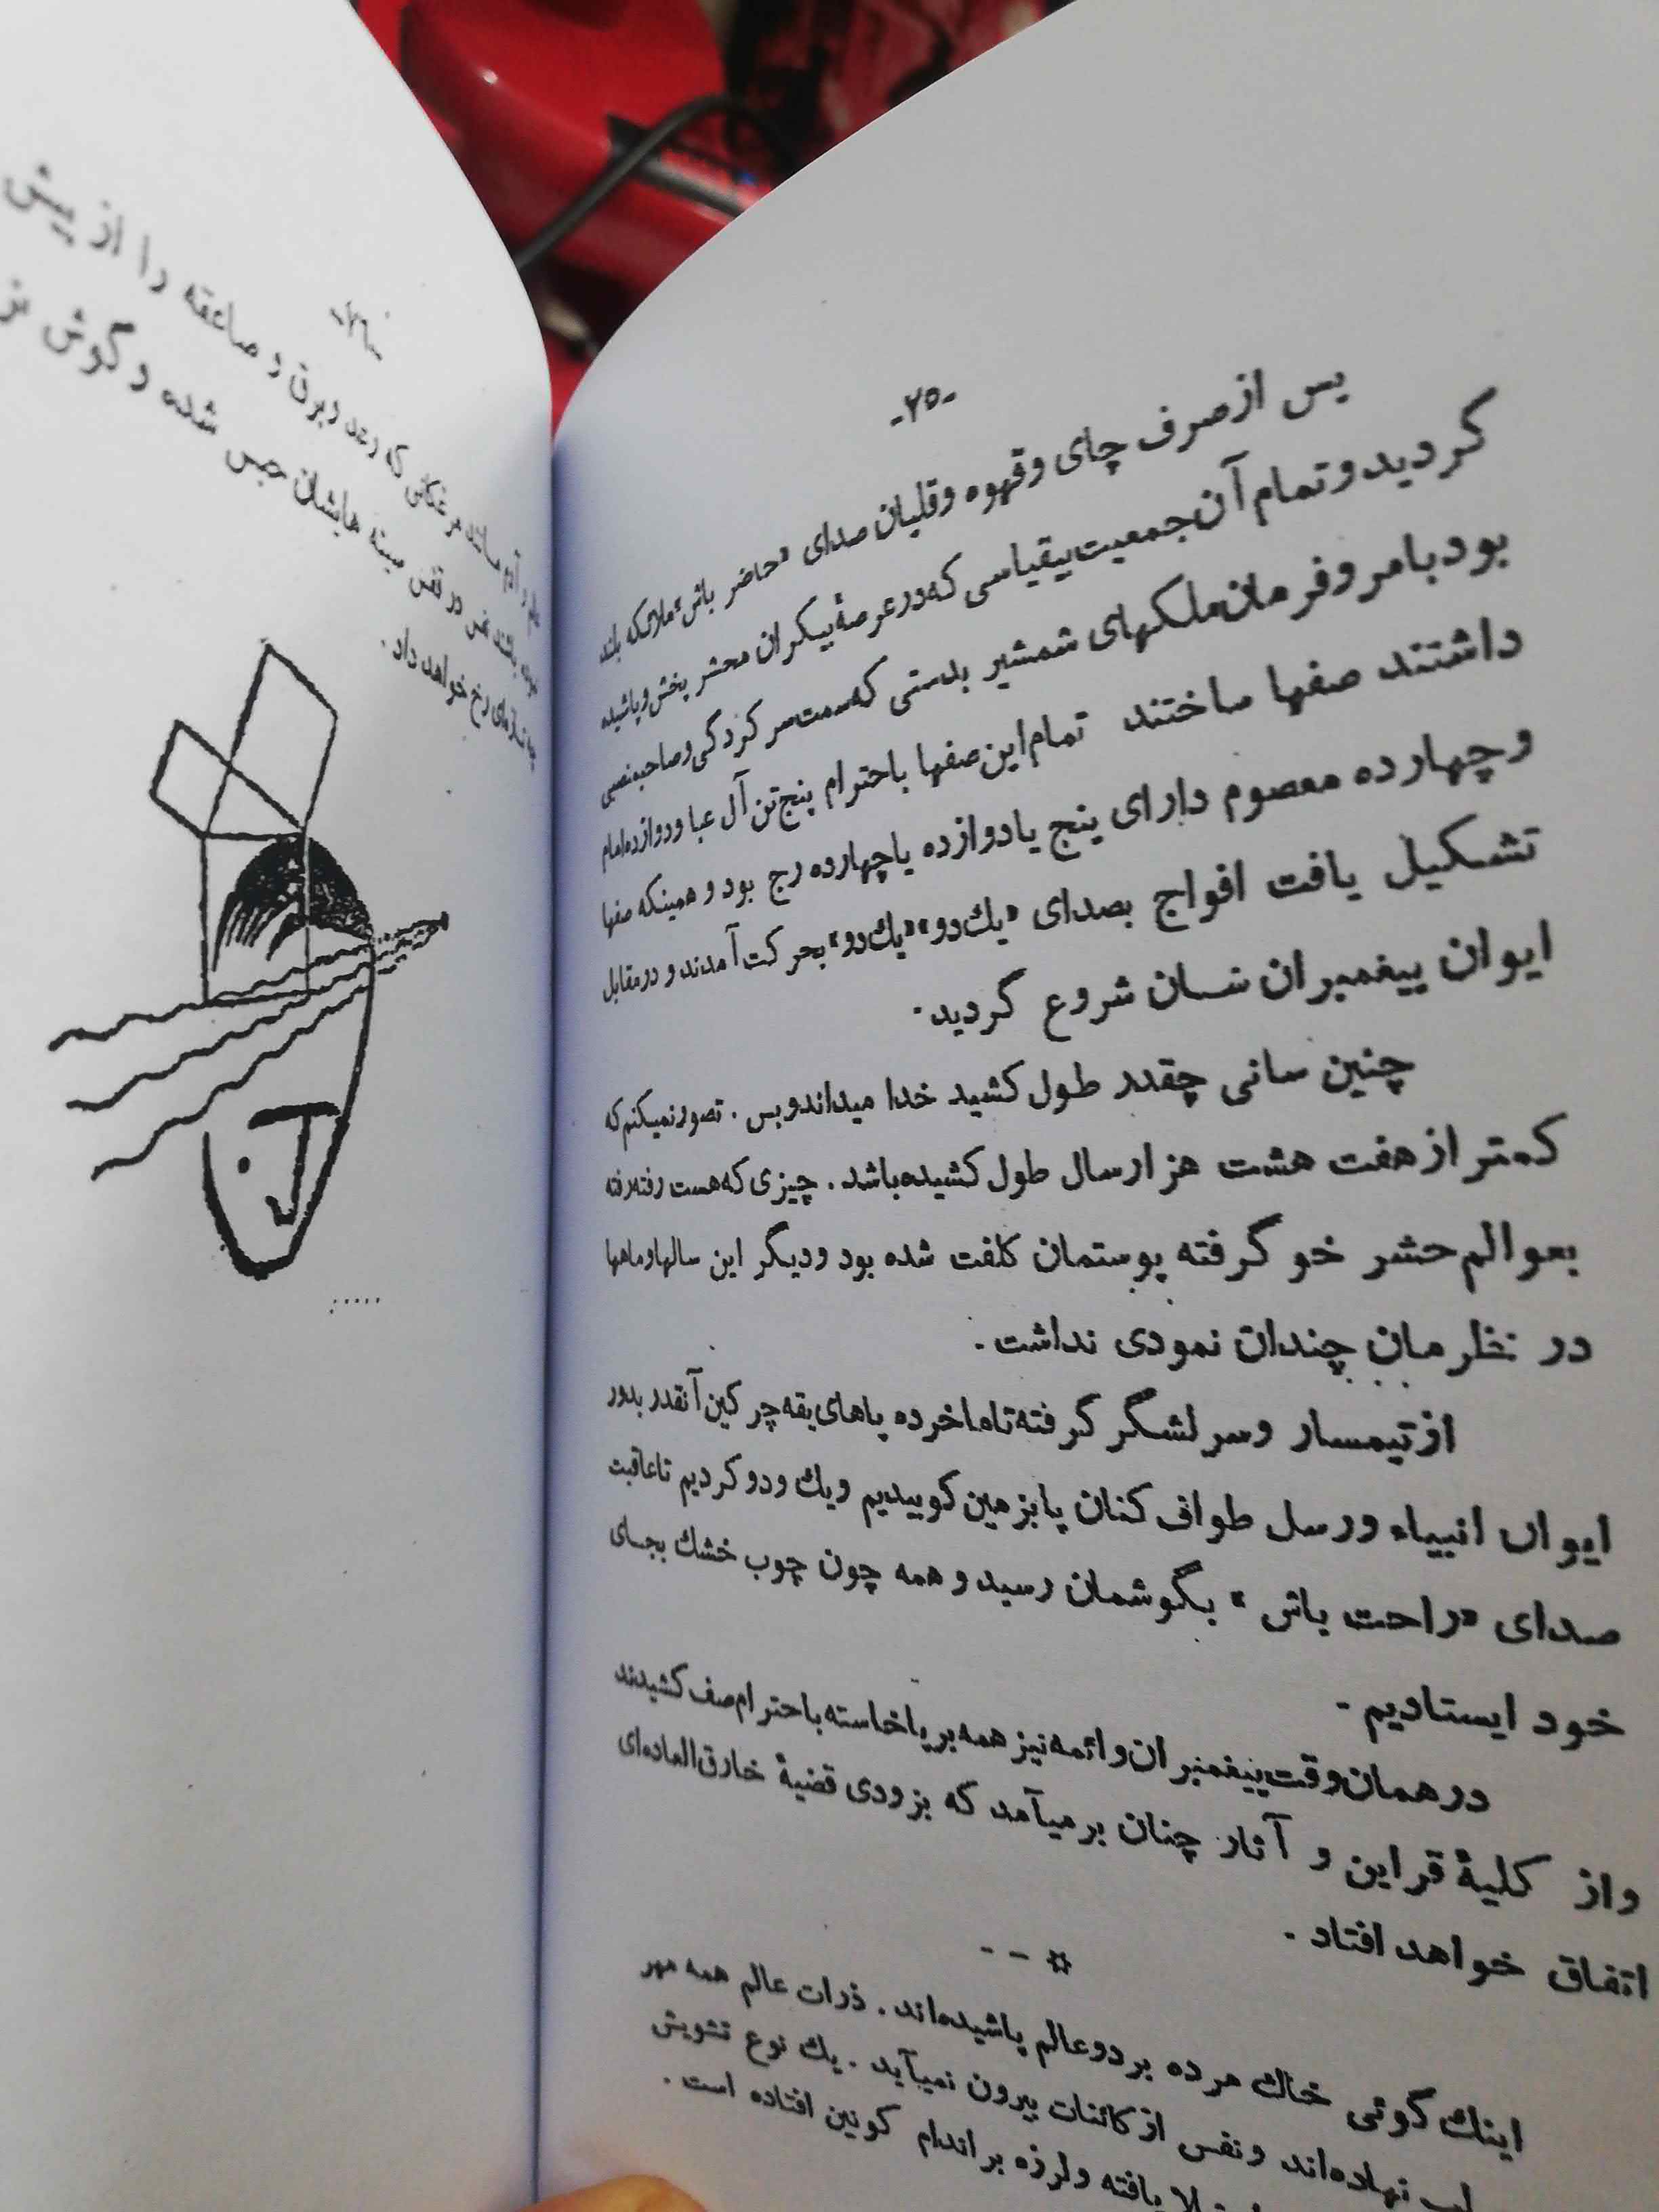 -۲۵-
پس از صرف چای وقهوه وقلیان صدای «حاضر باش» ملائکه بلند
گردید وتمام آن جمعیت بیقیاسی که در عرصهٔ بیکران محشر پخش و پاشیده
بود بامر وفرمان ملکهای شمشیر بدستی که سمت سر کردگی و صاحبمنصبی
داشتند صفها ساختند تمام این صفها باحترام پنج تن آل عبا و دوازده امام
وچهارده معصوم دارای پنج یا دوازده یا چهارده رج بود و همینکه صفها
تشکیل یافت افواج بصدای «یك دو» «یك دو» بحر کت آمدند و در مقابل
ایوان پیغمبران سان شروع گردید.
چنین سانی چقدر طول کشید خدا میداند و بس . تصور نمیکنم که
کمتر از هفت هشت هزار سال طول کشیده باشد . چیزی که هست رفته رفته
بعوالم حشر خو گرفته پوستمان کلفت شده بود ودیگر این سالها و ماهها
در نظرمان چندان نمودی نداشت .
از تیمسار وسر لشگر گرفته تا ما خرده پاهای یقه چر کین آنقدر بدور
ایوان انبیاء ورسل طواف کنان پا بزمین کوبیدیم ویك ودو کردیم تا عاقبت
صدای «راحت باش» بگوشمان رسید و همه چون چوب خشك بجای
خود ایستادیم -
در همان وقت پیغمبران و ائمه نیز همه بر پا خاسته باحترام صف کشیدند
واز کلیهٔ قراین و آثار چنان بر میآمد که بزودی قضیهٔ خارق العاده‌ای
اتفاق خواهد افتاد .
☼ - -
اینك گوئی خاك مرده بر دوعالم پاشیده‌اند . ذرات عالم همه مهر
لب نهاده‌اند ونفس از کائنات بیرون نمیآید . یك نوع تشویش
یافته ولرزه بر اندام کونین افتاده است .
-۲٦-
مانند مرغکانی که رعد وبرق و صاعقه را از پیش
باشند نفس در قفس سینه هایشان حبس شده و گوش
تازه‌ای رخ خواهد داد .
.....